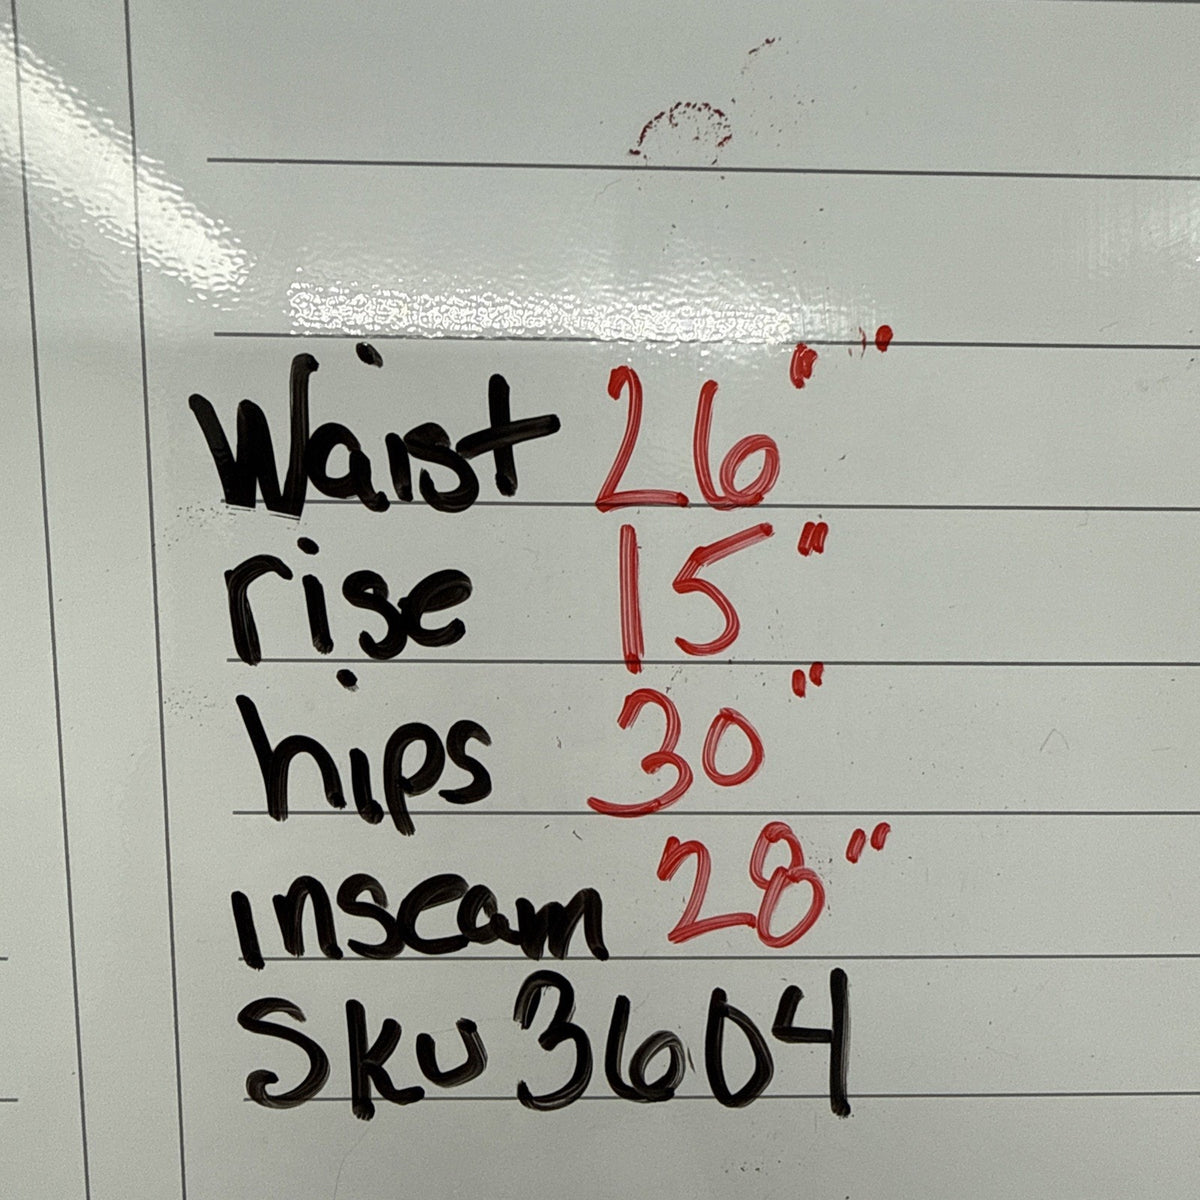 Waist 26"
rise 15"
hips 30"
inseam 28"
Sku 3604